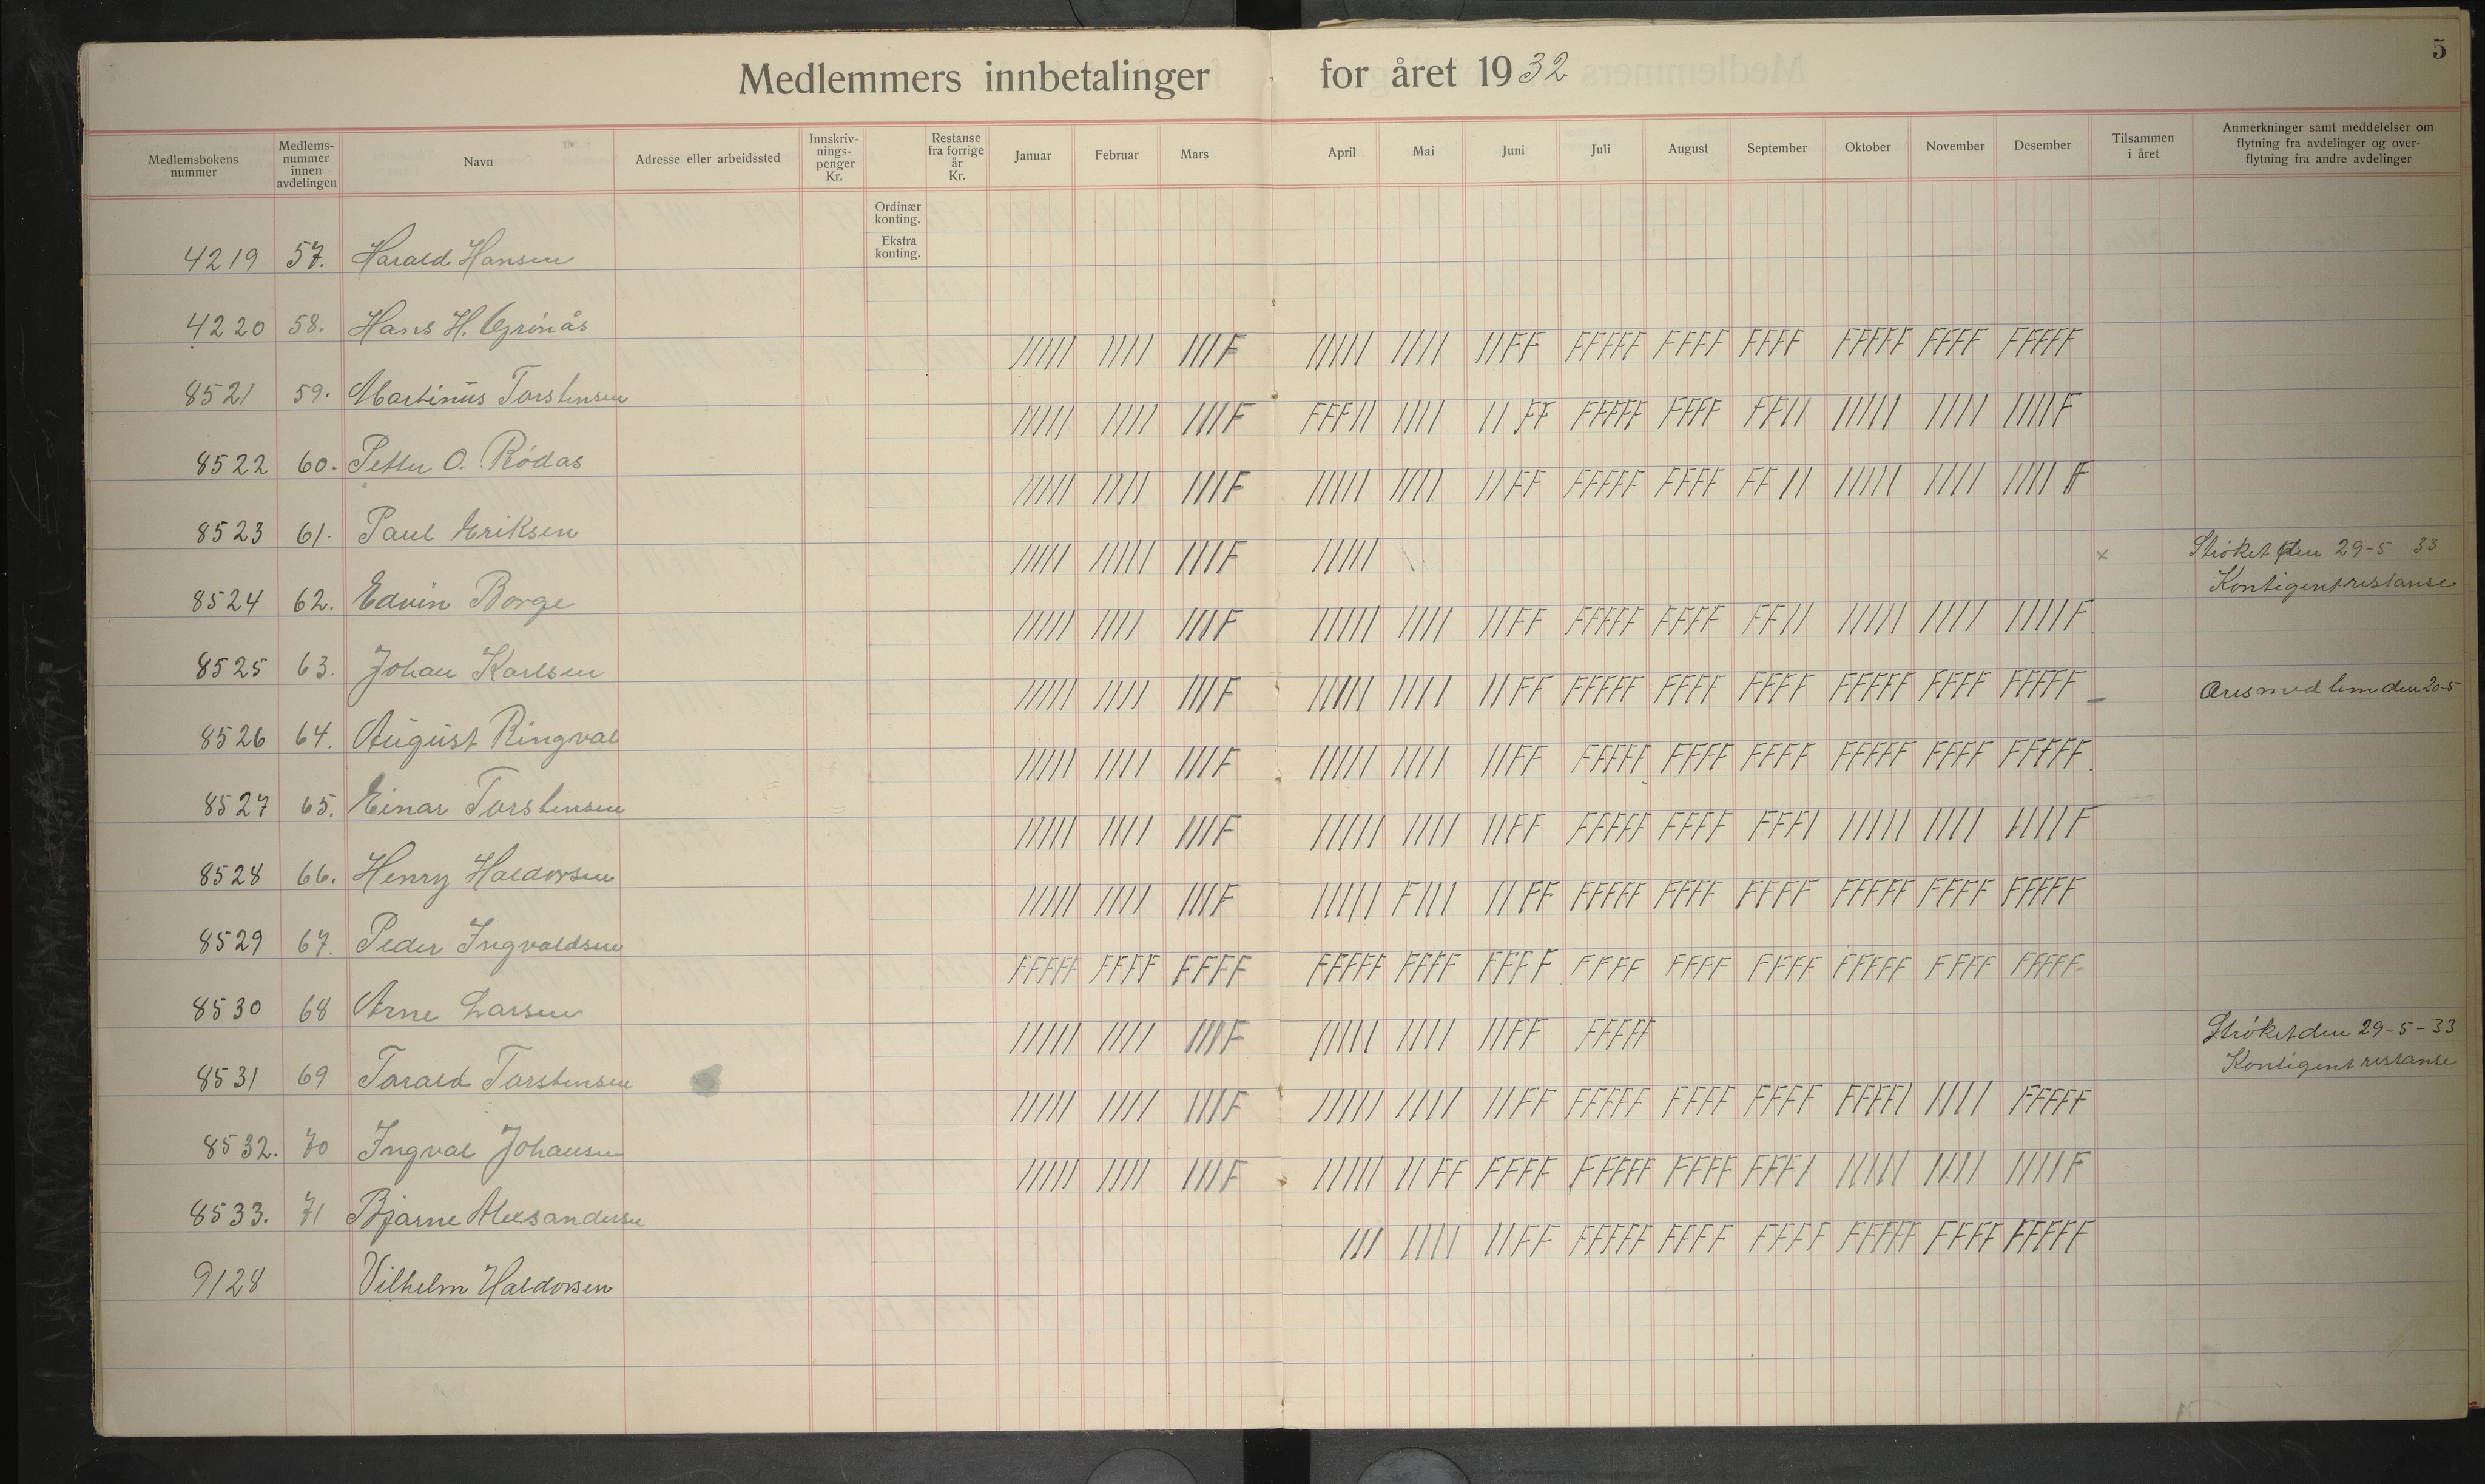 5
Medlemmers innbetalinger for året 1932
Medlemsbokens nummer
Medlems-nummer innen avdelingen
Navn
Adresse eller arbeidssted
Innskriv-nings-penger Kr.
Restanse fra forrige år Kr.
Januar Februar Mars April Mai Juni Juli August September Oktober November Desember
Tilsammen i året
Anmerkninger samt meddelelser om flytning fra avdelinger og over-flytning fra andre avdelinger
Ordinær konting.
Ekstra konting.
4219 57. Harald Hansen
4220 58. Hans H. Grönås
///// //// ///F ///// //// //FF FFFFF FFFF FFFF FFFFF FFFF FFFFF
8521 59. Martinus Torstensen
///// //// ///F FFF// //// //FF FFFFF FFFF FF// ///// //// ////F
8522 60. Petter O. Rödas
///// //// ///F ///// //// //FF FFFFF FFFF FF// ///// //// ////F
8523 61. Paul Eriksen
///// ///// ///F ///// \ x Ströket den 29-5 33
Kontigentrestanse
8524 62. Edvin Borge
///// //// ///F ///// //// //FF FFFFF FFFF FF// ///// //// ////F
8525 63. Johan Karlsen
///// //// ///F ///// //// //FF FFFFF FFFF FFFF FFFFF FFFF FFFFF Æresmedlem den 20-5
8526 64. August Ringval
///// //// ///F ///// //// //FF FFFFF FFFF FFFF FFFFF FFFF FFFFF
8527 65. Einar Torstensen
///// //// ///F ///// //// //FF FFFFF FFFF FFF/ ///// //// ////F
8528 66. Henry Haldorsen
///// //// ///F ///// F/// //FF FFFFF FFFF FFFF FFFFF FFFF FFFFF
8529 67. Peder Ingvaldsen
FFFFF FFFF FFFF FFFFF FFFF FFFF FFFF FFFF FFFF FFFFF FFFF FFFFF
8530 68 Arne Larsen
///// //// ///F ///// //// //FF FFFFF Ströket den 29-5-33
Kontigent restanse
8531 69 Torald Torstensen
///// //// ///F ///// //// //FF FFFFF FFFF FFFF FFFF/ //// FFFFF
8532. 70 Ingval Johansen
///// //// ///F ///// //FF FFFF FFFFF FFFF FFF/ ///// //// ////F
8533. 71 Bjarne Aleksandersen
/// //// //FF FFFFF FFFF FFFF FFFFF FFFF FFFFF
9128 Vilhelm Haldorsen